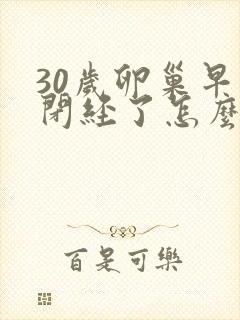 30歲卵巢早
閉經了怎麼
百是可樂